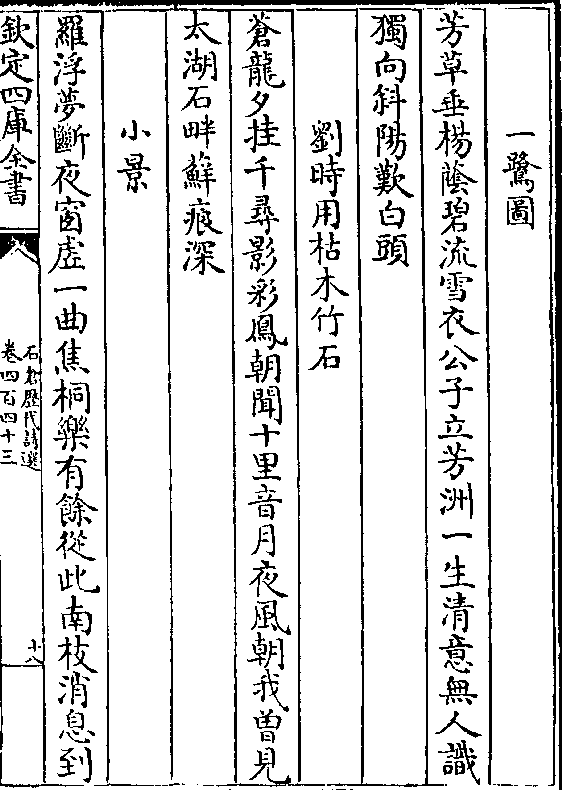 一鷺圖
芳草垂楊蔭碧流雪衣公子立芳洲一生清意無人識
獨向斜陽歎白頭
劉時用枯木竹石
蒼龍夕挂千尋影彩鳳朝聞十里音月夜風朝我曾見
太湖石畔蘚痕深
小景
羅浮夢斷夜窗虚一曲焦桐樂有餘從此南枝消息到
欽定四庫全書
石倉歷代詩選
卷四百四十三
十八